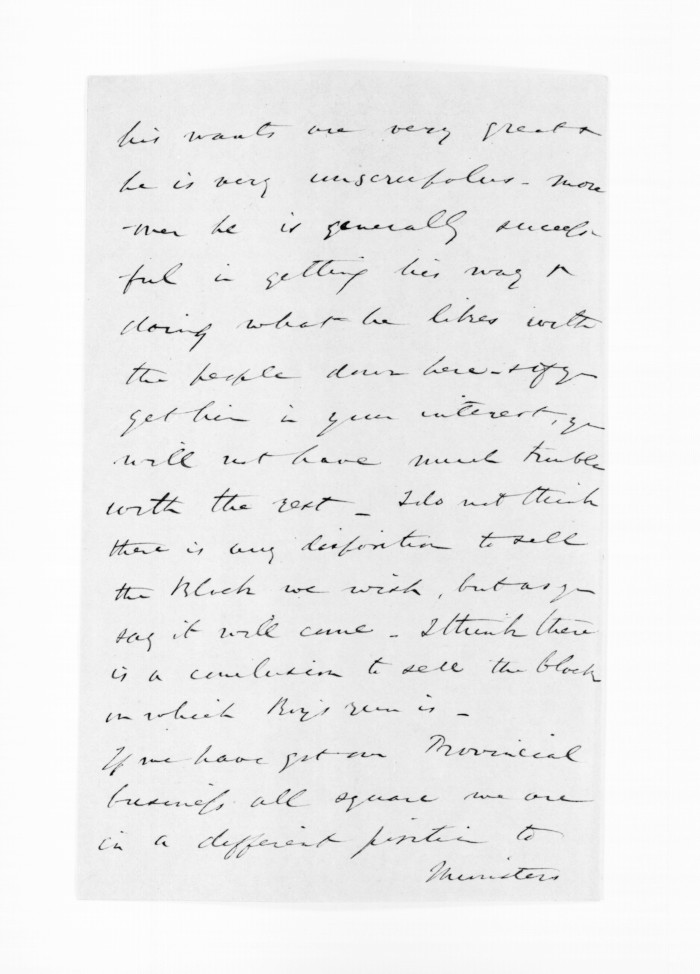 his wants are very great &
he is very unscrupulus - more
over he is generally success-
ful in getting his way &
doing what he likes with
the people down here - & if you
get him in your interest, you
will not have much trouble
with the rest - I do not think
there is any disposition to sell
the Block we wish, but as you
say it will come - I think there
is a conclusion to sell the block
on which Boy's run is -
If we have got our Provincial
business all square we are
in a different position to
Ministers